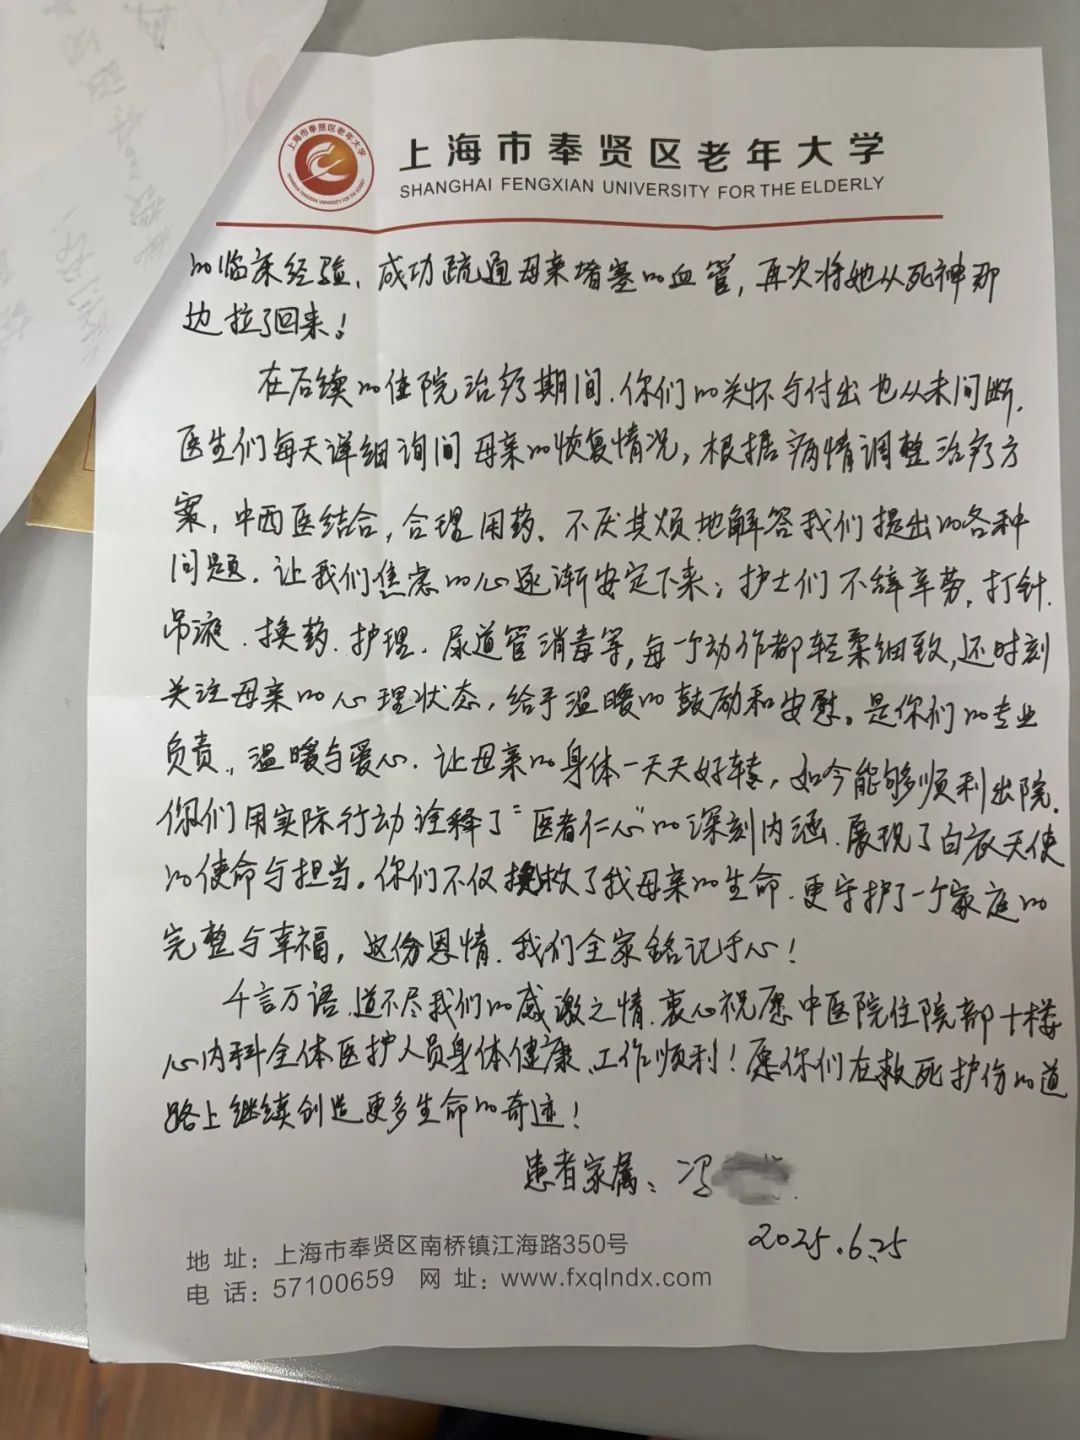 上海市奉贤区老年大学
SHANGHAI FENGXIAN UNIVERSITY FOR THE ELDERLY
的临床经验，成功疏通母亲堵塞的血管，再次将她从死神那
边拉了回来！
在后续的住院治疗期间，你们的关怀与付出也从未间断，
医生们每天详细询问母亲的恢复情况，根据病情调整治疗方
案，中西医结合，合理用药、不厌其烦地解答我们提出的各种
问题，让我们焦虑的心逐渐安定下来；护士们不辞辛劳，打针、
吊液、换药、护理、尿道管消毒等，每个动作都轻柔细致，还时刻
关注母亲的心理状态，给予温暖的鼓励和安慰。是你们的专业
负责、温暖与爱心，让母亲的身体一天天好转，如今能够顺利出院，
你们用实际行动诠释了“医者仁心”的深刻内涵，展现了白衣天使
的使命与担当。你们不仅拯救了我母亲的生命，更守护了一个家庭的
完整与幸福，这份恩情，我们全家铭记于心！
千言万语，道不尽我们的感激之情，衷心祝愿中医院住院部十楼
心内科全体医护人员身体健康、工作顺利！愿你们在救死护伤的道
路上继续创造更多生命的奇迹！
患者家属：冯
2025.6.25
地 址：上海市奉贤区南桥镇江海路350号
电 话：57100659 网 址：www.fxqlndx.com